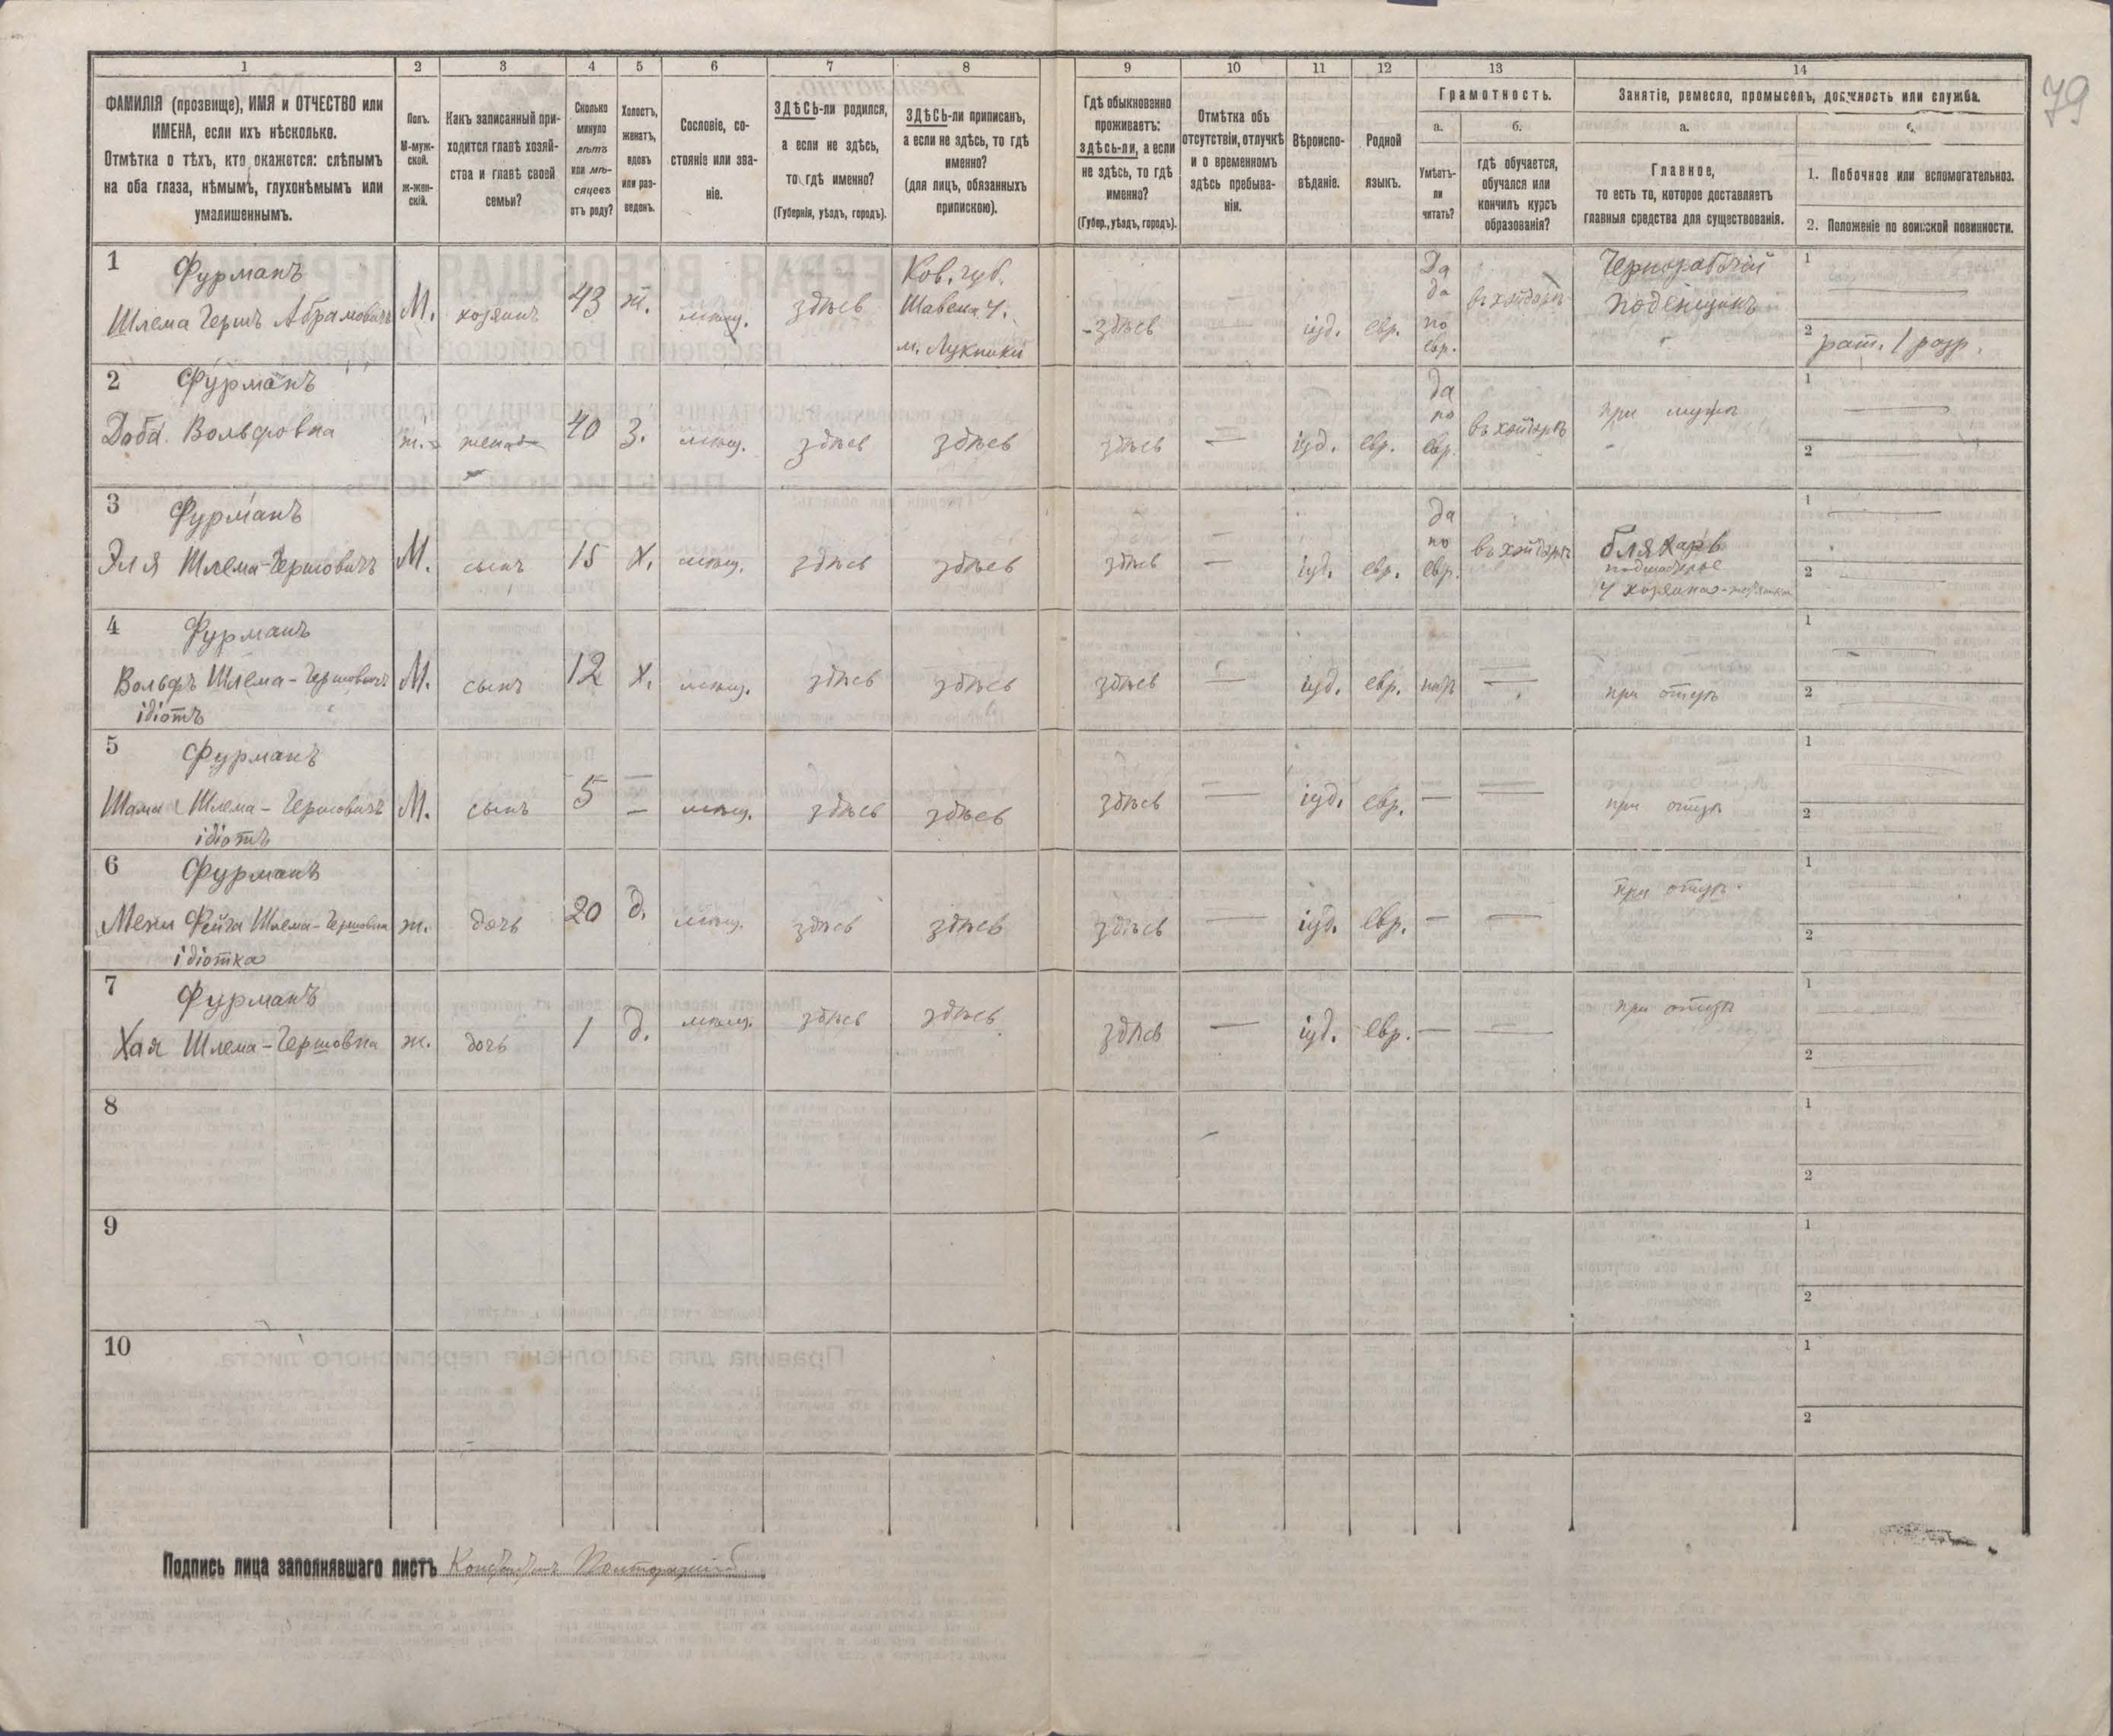 79
1 2 3 4 5 6 7 8 9 10 11 12 13 14
ФАМИЛІЯ (прозвище), ИМЯ и ОТЧЕСТВО или
ИМЕНА, если ихъ нѣсколько.
Отмѣтка о тѣхъ, кто окажется: слѣпымъ
на оба глаза, нѣмымъ, глухонѣмымъ или
умалишеннымъ.
Полъ.
М-муж-
ской.
ж-жен-
скій.
Какъ записанный при-
ходится главѣ хозяй-
ства и главѣ своей
семьи?
Сколько
минуло
лѣтъ
или мѣ-
сяцевъ
отъ роду?
Холостъ,
женатъ,
вдовъ
или раз-
веденъ.
Сословіе, со-
стояніе или зва-
ніе.
ЗДѢСЬ-ли родился,
а если не здѣсь,
то гдѣ именно?
(Губернія, уѣздъ, городъ).
ЗДѢСЬ-ли приписанъ,
а если не здѣсь, то гдѣ
именно?
(для лицъ, обязанныхъ
припискою).
Гдѣ обыкновенно
проживаетъ:
здѣсь-ли, а если
не здѣсь, то гдѣ
именно?
(Губер., уѣздъ, городъ).
Отмѣтка объ
отсутствіи, отлучкѣ
и о временномъ
здѣсь пребыва-
ніи.
Вѣроиспо-
вѣданіе.
Родной
языкъ.
Грамотность.
а.
Умѣетъ-
ли
читать?
б.
гдѣ обучается,
обучался или
кончилъ курсъ
образованія?
Занятіе, ремесло, промыселъ, должность или служба.
а.
Главное,
то есть то, которое доставляетъ
главныя средства для существованія.
1. Побочное или вспомогательное.
2. Положеніе по воинской повинности.
1 Фурманъ
Шлема Гершъ Абрамовичъ М. хозяинъ 43 ж. мѣщ. здѣсь
Ков. губ.
Шавельск. у.
м. Лукники
здѣсь — іуд. евр.
Да
да
по
евр.
въ хэйдеръ
Чернорабочій
поденщикъ
1
2 рат. 1 разр.
2 Фурманъ
Доба Вольфовна ж. жена 40 З. мѣщ. здѣсь здѣсь здѣсь — іуд. евр.
да
по
евр.
въ хэйдеръ
при мужѣ
1
2
3 Фурманъ
Эля Шлема-Гершовичъ М. сынъ 15 Х. мѣщ. здѣсь здѣсь здѣсь — іуд. евр.
да
по
евр.
въ хэйдеръ
бляхаръ
у хозяина
1
2
4 Фурманъ
Вольфъ Шлема-Гершовичъ М. сынъ 12 Х. мѣщ. здѣсь здѣсь здѣсь — іуд. евр. нѣтъ — при отцѣ
идіотъ
1
2
5 Фурманъ
Шлема-Гершовичъ М. сынъ 5 — мѣщ. здѣсь здѣсь здѣсь — іуд. евр. — — при отцѣ
идіотъ
1
2
6 Фурманъ
Фейга Шлема-Гершовна ж. дочь 20 д. мѣщ. здѣсь здѣсь здѣсь — іуд. евр. — — при отцѣ
идіотка
1
2
7 Фурманъ
Хая Шлема-Гершовна ж. дочь 1 д. мѣщ. здѣсь здѣсь здѣсь — іуд. евр. — — при отцѣ
1
2
8
1
2
9
1
2
10
1
2
Подпись лица заполнявшаго листъ